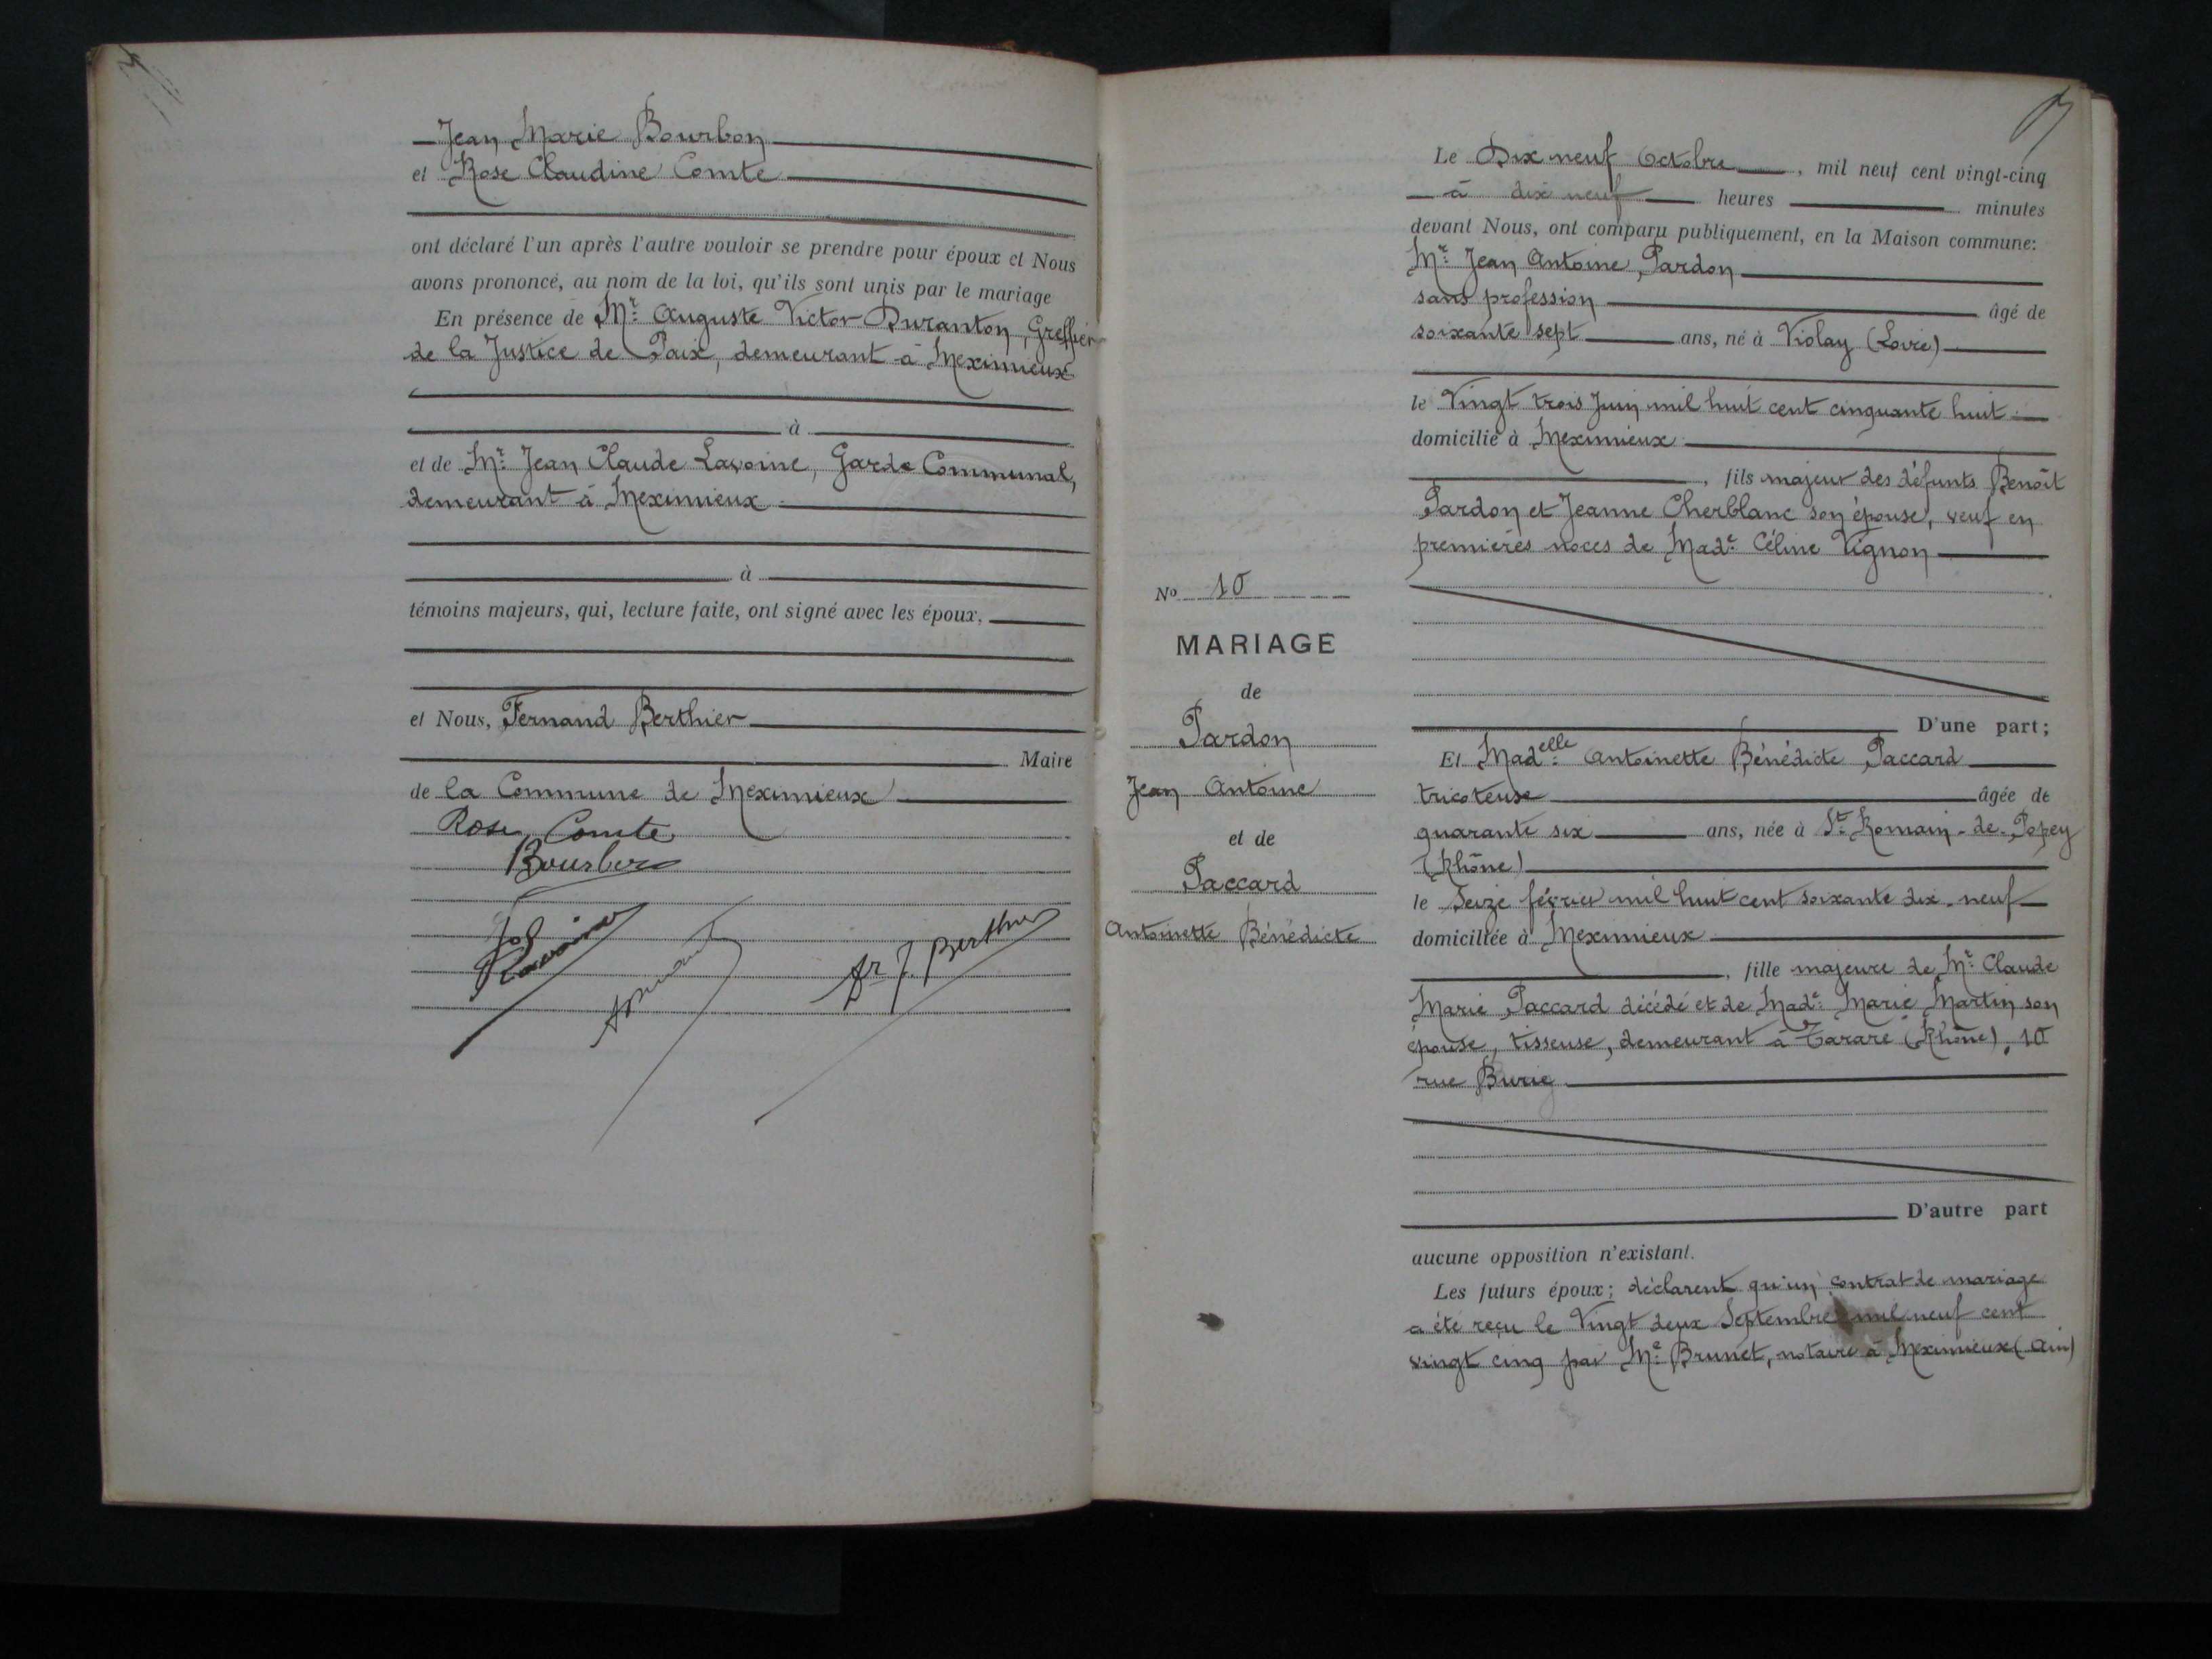 Jean Marie Bourbon
et Rose Claudine Comte
ont déclaré l'un après l'autre vouloir se prendre pour époux et Nous
avons prononcé, au nom de la loi, qu'ils sont unis par le mariage
En présence de Mr Auguste Victor Duranton, Greffier
de la Justice de Paix, demeurant à Meximieux
à
et de Mr Jean Claude Lavoine, Garde Communal,
demeurant à Meximieux
à
témoins majeurs, qui, lecture faite, ont signé avec les époux,
et Nous, Fernand Berthier
Maire
de la Commune de Meximieux
Rose Comte
Bourbon
Dr F. Berthier
Le Dix neuf Octobre, mil neuf cent vingt-cinq
à dix neuf heures minutes
devant Nous, ont comparu publiquement, en la Maison commune:
Mr Jean Antoine Pardon
sans profession âgé de
soixante sept ans, né à Violay (Loire)
le Vingt trois Juin mil huit cent cinquante huit
domicilié à Meximieux
, fils majeur des défunts Benoît
Pardon et Jeanne Cherblanc son épouse, veuf en
premières noces de Made Céline Vignon
No 10
MARIAGE
de
Pardon
Jean Antoine
et de
Paccard
Antoinette Bénédicte
D'une part;
Et Madelle Antoinette Bénédicte Paccard
tricoteuse âgée de
quarante six ans, née à St Romain-de-Popey
(Rhône)
le Seize février mil huit cent soixante dix-neuf
domiciliée à Meximieux
, fille majeure de Mr Claude
Marie Paccard décédé et de Made Marie Martin son
épouse, tisseuse, demeurant à Tarare (Rhône), 10
rue Burie
D'autre part
aucune opposition n'existant.
Les futurs époux; déclarent qu'un contrat de mariage
a été reçu le Vingt deux Septembre mil neuf cent
vingt cinq par Me Brunet, notaire à Meximieux (Ain)